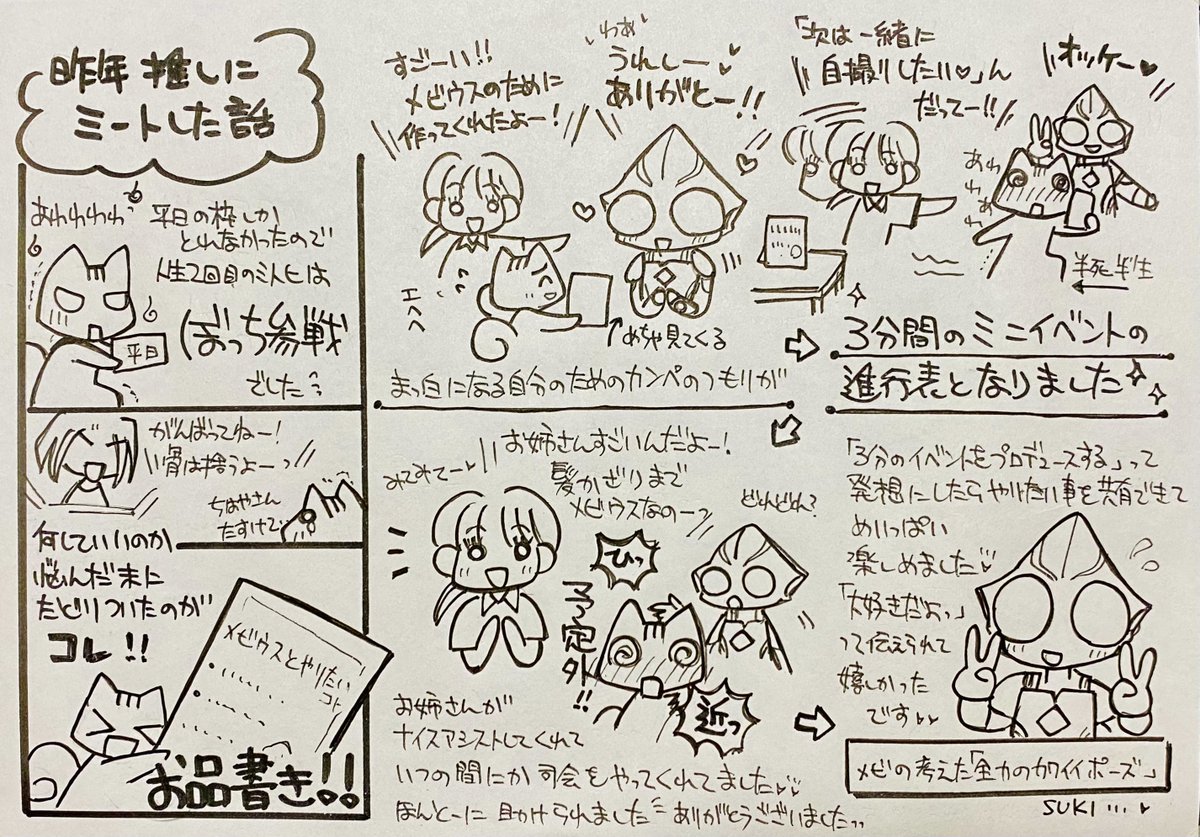 昨年推しに
ミートした話
あわわわわ
平日の枠しか
とれなかったので
人生2回目のミトヒは
ぼっち参戦
でした
平日
がんばってねー!
骨は拾うよーっ
ちはやさん
たすけて
何していいのか
悩んだ末に
たどりついたのが
コレ!!
メビウスとやりたい
コト
お品書き!!
すごーい!!
メビウスのために
作ってくれたよー!
わあ
うれしー♥
ありがとー!!
エヘヘ
めちゃ見てくる
まっ白になる自分のためのカンペのつもりが
「次は一緒に
自撮りしたい♥」ん
だってー!!
オッケー♥
あわわあわ
半死半生
3分間のミニイベントの
進行表となりました
みてみてー
お姉さんすごいんだよー!
髪かざりまで
メビウスなのーっ
どれどれ?
ひっ
予定外!!
近っ
お姉さんが
ナイスアシストしてくれて
いつの間にか司会をやってくれてました♥
ほんとーに助けられました ありがとうございましたっ
「3分のイベントをプロデュースする」って
発想にしたらやりたい事を共有できて
めいっぱい
楽しめました
「大好きだよっ」
って伝えられて
嬉しかった
です
メビの考えた「全力のカワイイポーズ」
SUKI…♥